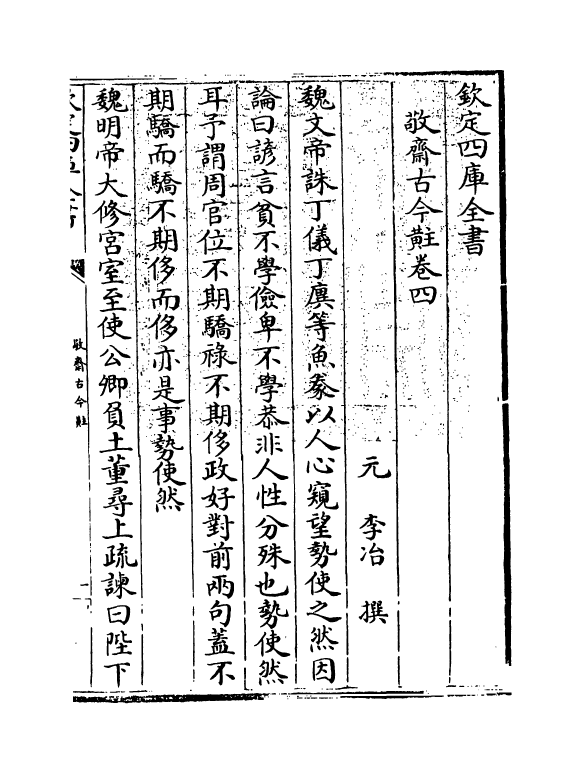 欽定四庫全書
敬齋古今黈卷四
元　李冶　撰
魏文帝誅丁儀丁廙等魚豢以人心窺望勢使之然因
論曰諺言貧不學儉卑不學恭非人性分殊也勢使然
耳予謂周官位不期驕祿不期侈政好對前兩句蓋不
期驕而驕不期侈而侈亦是事勢使然
魏明帝大修宮室至使公卿負土董尋上疏諫曰陛下
敬齋古今黈
一